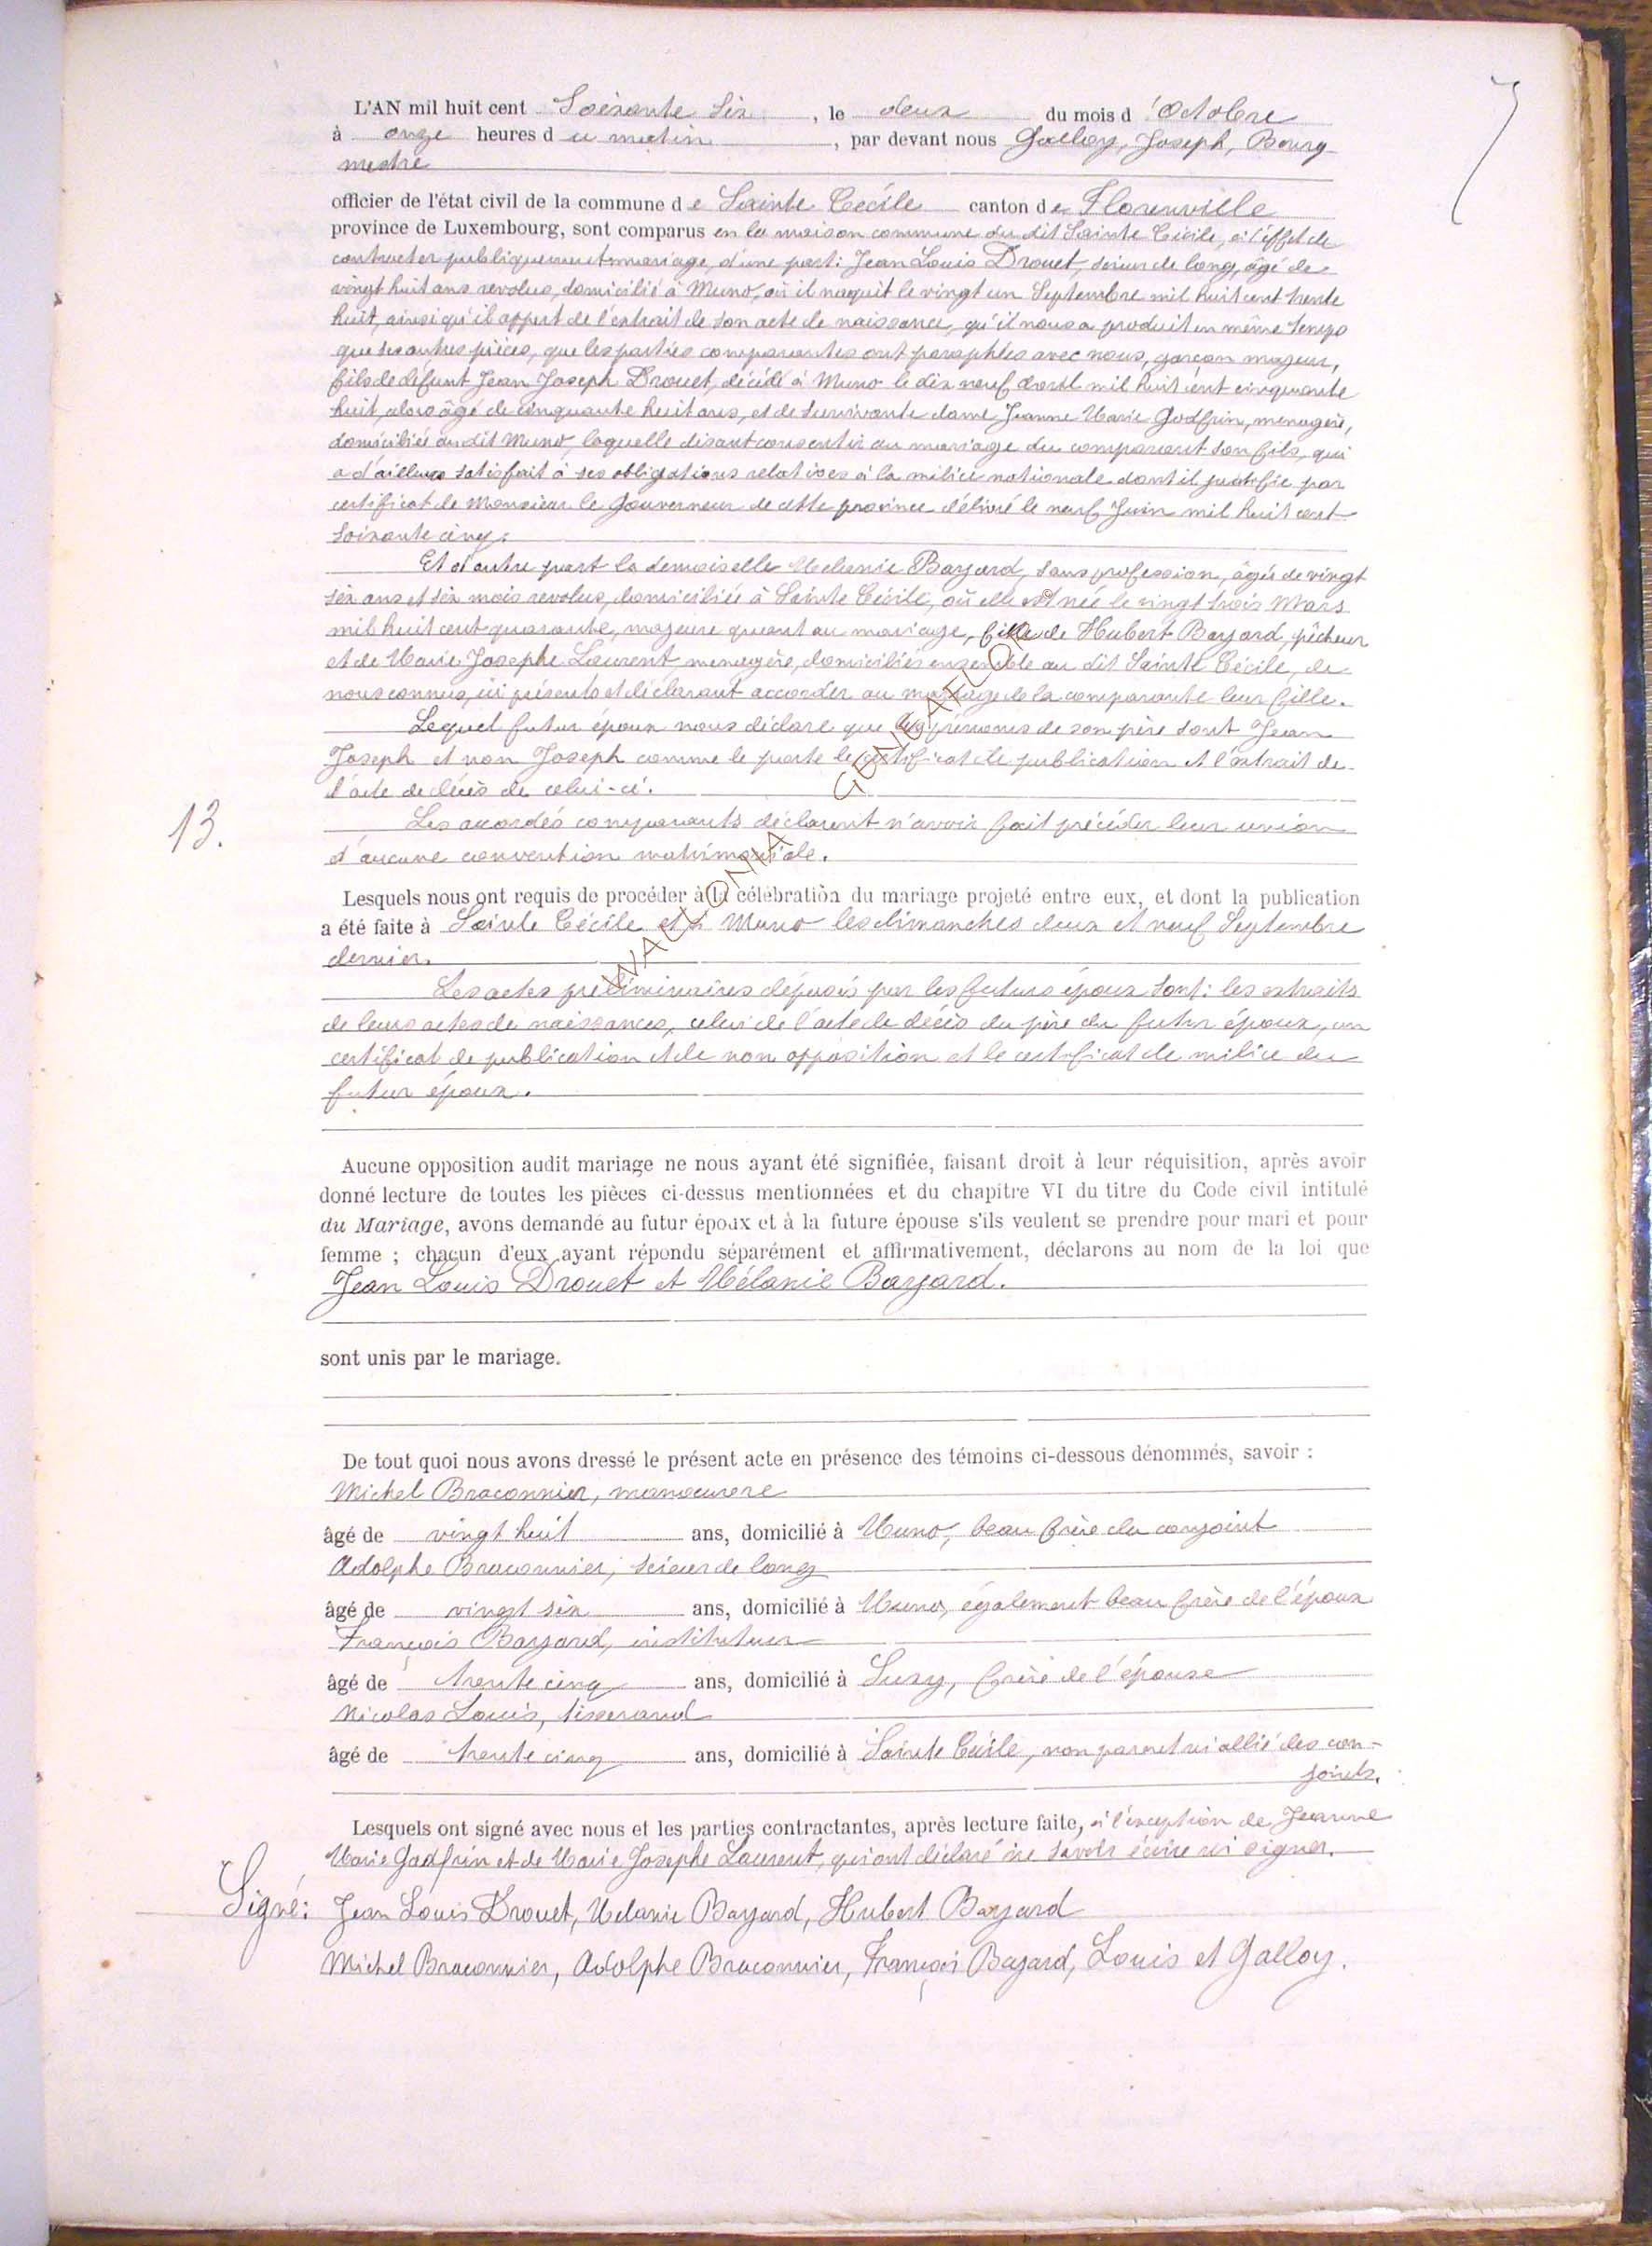 7
L'AN mil huit cent Soixante Six, le deux du mois d'Octobre
à onze heures du matin, par devant nous Galloy, Joseph, Bourg
mestre
officier de l'état civil de la commune de Sainte Cécile canton de Florenville
province de Luxembourg, sont comparus en la maison commune du dit Sainte Cécile, à l'effet de
contracter publiquement mariage, d'une part: Jean Louis Drouet, scieur de long, âgé de
vingt huit ans revolus, domicilié à Muno, où il naquit le vingt un Septembre mil huit cent trente
huit, ainsi qu'il appert de l'extrait de son acte de naissance, qu'il nous a produit en même temps
que ses autres pièces, que les parties comparantes ont paraphées avec nous, garçon majeur,
fils de defunt Jean Joseph Drouet, décédé à Muno le dix neuf mil huit cent cinquante
huit, alors âgé de cinquante huit ans, et de survivante dame Jeanne Marie Godfrin, menagère,
domiciliée au dit Muno, laquelle disant consentir au mariage du comparant son fils, qui
a d'ailleurs satisfait à ses obligations relatives à la milice nationale dont il justifie par
certificat de Monsieur le Gouverneur de cette province délivré le neuf Juin mil huit cent
soixante cinq.
Et d'autre part la demoiselle Melanie Bayard, sans profession, âgée de vingt
six ans et six mois revolus, domiciliée à Sainte Cécile, où elle est née le vingt trois Mars
mil huit cent quarante, majeure quant au mariage, fille de Hubert Bayard, pêcheur
et de Marie Josephe Laurent, menagère, domiciliés ensemble au dit Sainte Cécile, de
nous connus, ici présents et déclarant accorder au mariage de la comparante leur fille.
Lequel futur époux nous déclare que les prénoms de son père sont Jean
Joseph et non Joseph comme le porte le certificat de publication et l'extrait de
l'acte de décès de celui-ci.
13.
Les accordés comparants déclarent n'avoir fait précéder leur union
d'aucune convention matrimoniale.
Lesquels nous ont requis de procéder à la célébration du mariage projeté entre eux, et dont la publication
a été faite à Sainte Cécile et à Muno les dimanches deux et neuf Septembre
dernier.
Les actes préliminaires déposés par les futurs époux sont: les extraits
de leurs actes de naissances, celui de l'acte de décès du père du futur époux, un
certificat de publication et de non opposition et le certificat de milice du
futur époux.
WALLONIA GENEAFLOR
Aucune opposition audit mariage ne nous ayant été signifiée, faisant droit à leur réquisition, après avoir
donné lecture de toutes les pièces ci-dessus mentionnées et du chapitre VI du titre du Code civil intitulé
du Mariage, avons demandé au futur époux et à la future épouse s'ils veulent se prendre pour mari et pour
femme ; chacun d'eux ayant répondu séparément et affirmativement, déclarons au nom de la loi que
Jean Louis Drouet et Mélanie Bayard.
sont unis par le mariage.
De tout quoi nous avons dressé le présent acte en présence des témoins ci-dessous dénommés, savoir :
Michel Braconnier, manoeuvre
âgé de vingt huit ans, domicilié à Muno, beau frère du conjoint
Adolphe Braconnier, scieur de long
âgé de vingt six ans, domicilié à Muno, également beau frère de l'époux
François Bayard, instituteur
âgé de trente cinq ans, domicilié à Suxy, frère de l'épouse
Nicolas Louis, tisserand
âgé de trente cinq ans, domicilié à Sainte Cécile, non parent ni allié des con-
joints.
Lesquels ont signé avec nous et les parties contractantes, après lecture faite, à l'exception de Jeanne
Marie Godfrin et de Marie Josephe Laurent, qui ont déclaré ne savoir écrire ni signer.
Signé: Jean Louis Drouet, Melanie Bayard, Hubert Bayard
Michel Braconnier, Adolphe Braconnier, François Bayard, Louis et Galloy.